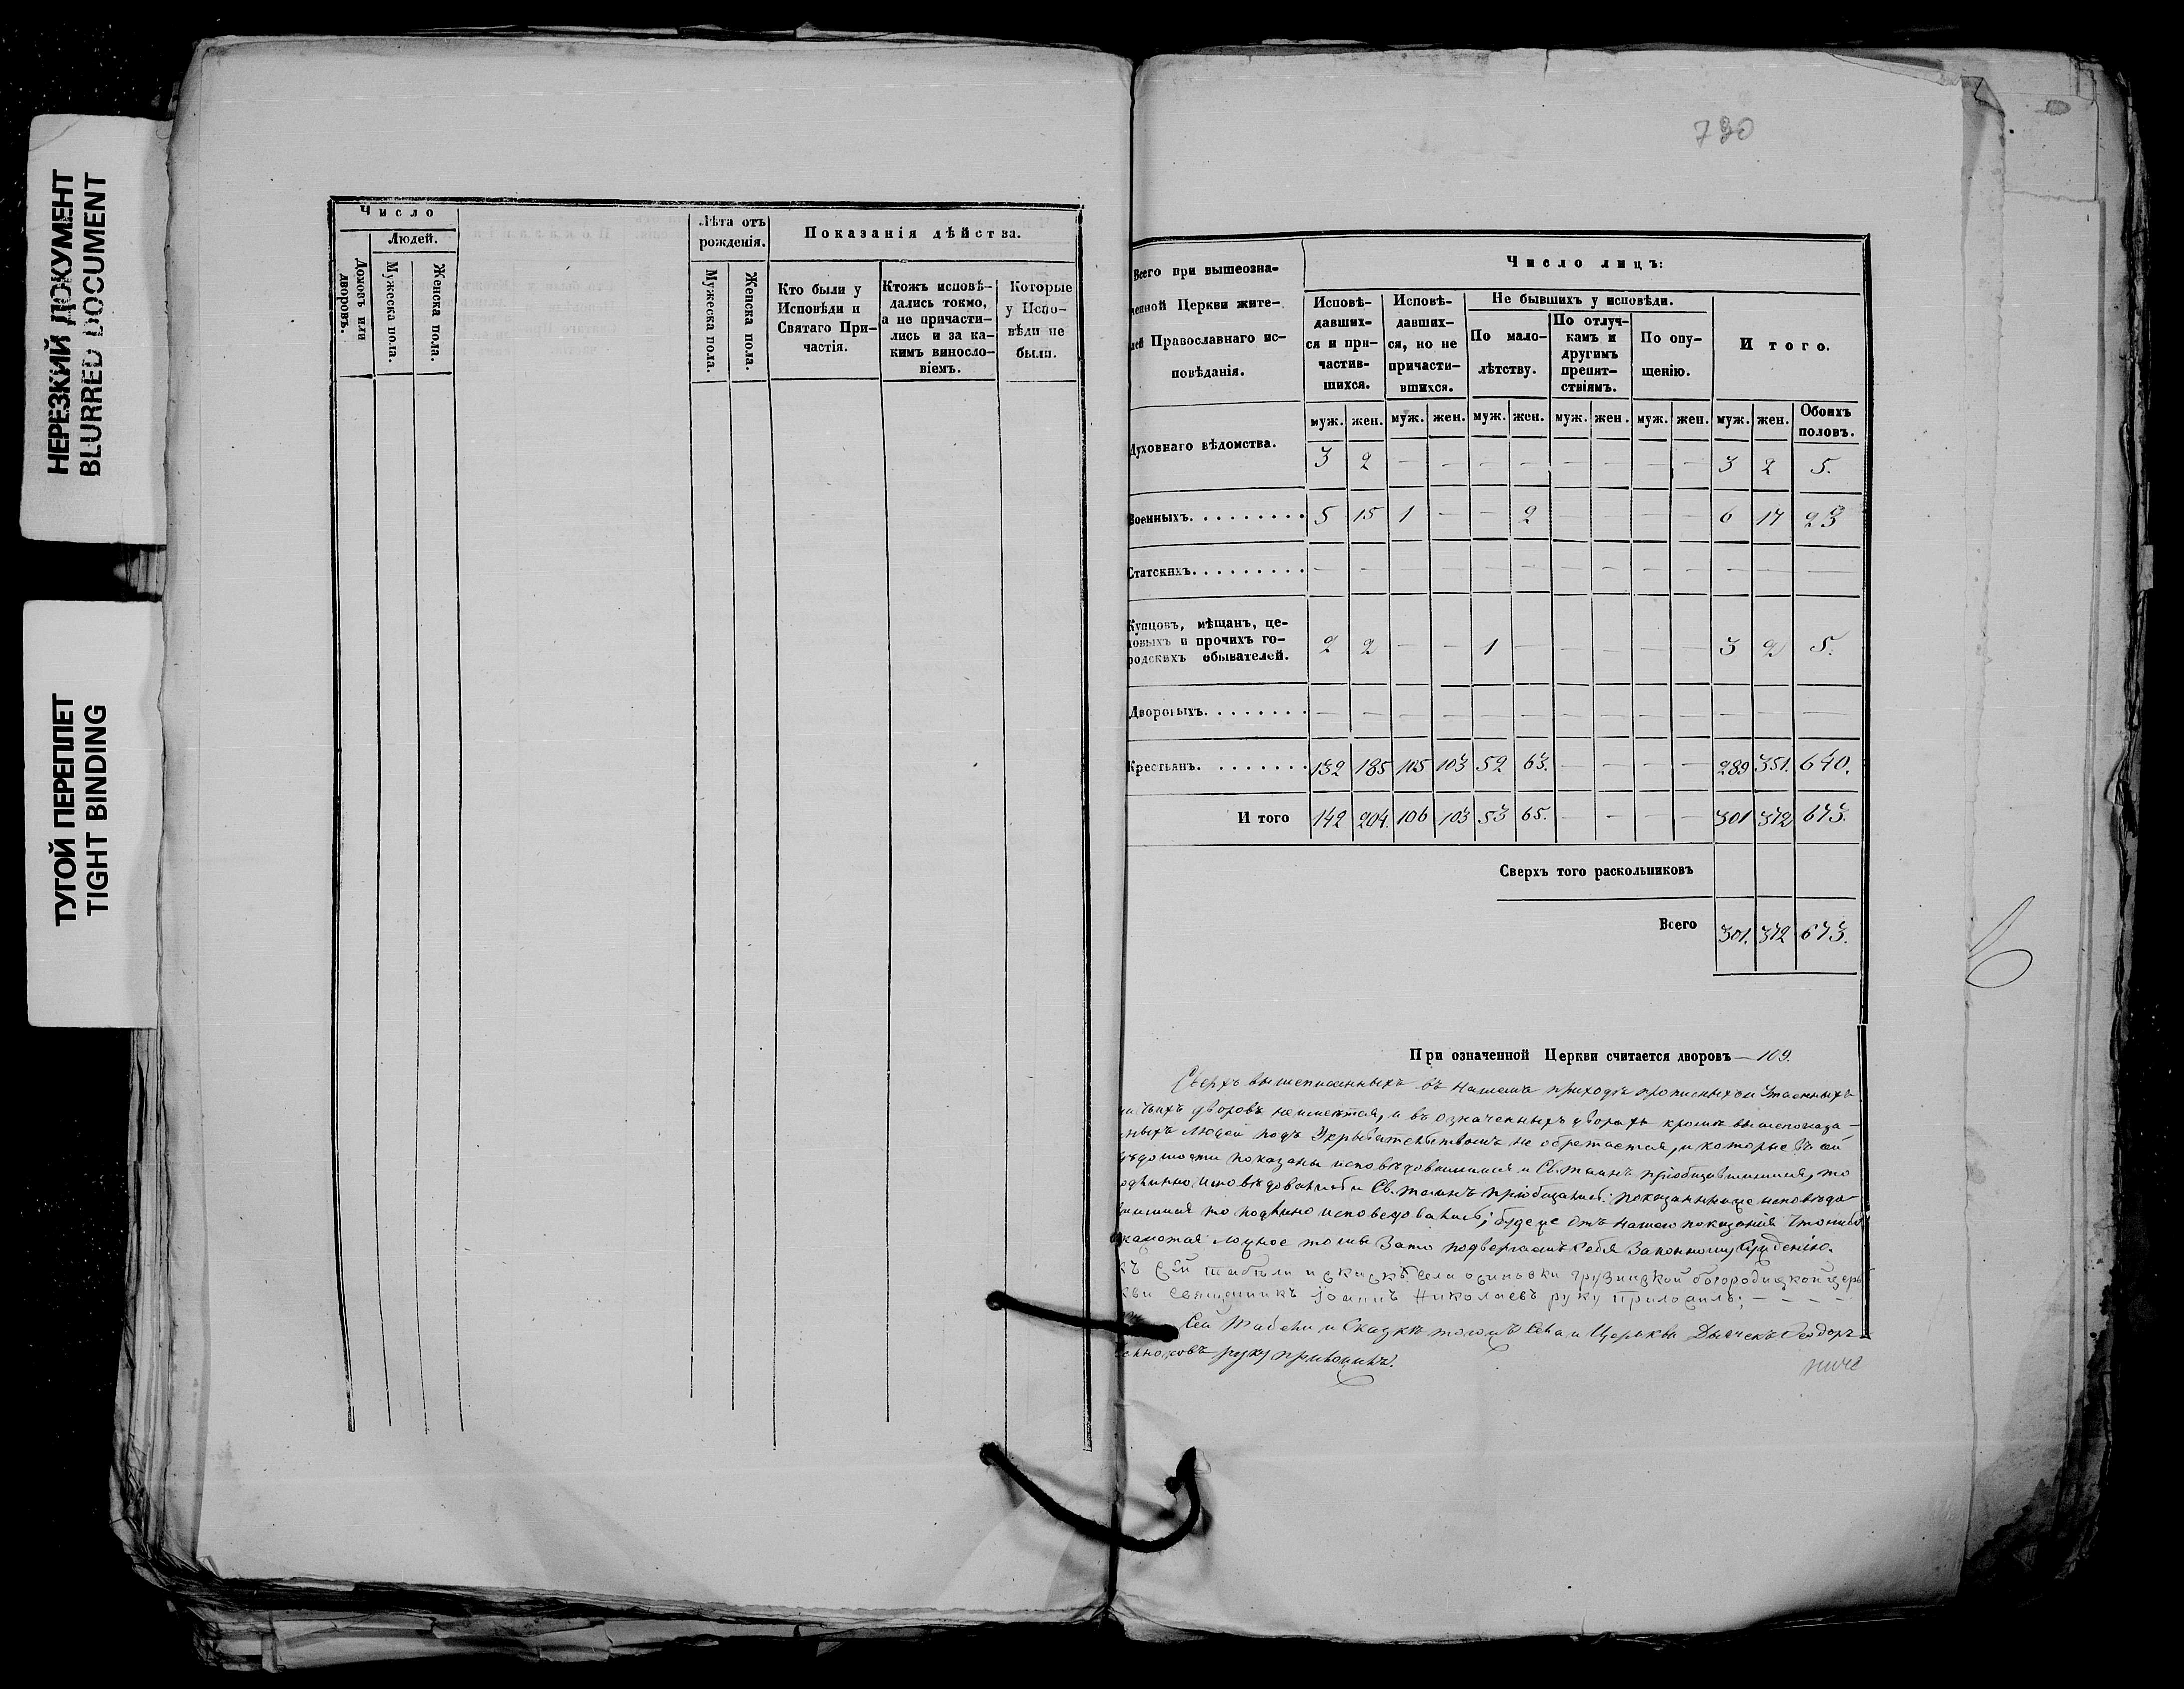 НЕРЕЗКИЙ ДОКУМЕНТ
BLURRED DOCUMENT
ТУГОЙ ПЕРЕПЛЕТ
TIGHT BINDING
Число
Людей.
Домовъ или дворовъ.
Мужеска пола.
Женска пола.
Лѣта отъ
рожденія.
Мужеска пола.
Женска пола.
Показанія дѣйства.
Кто были у
Исповѣди и
Святаго При-
частія.
Ктожъ исповѣ-
дались токмо,
а не причасти-
лись и за ка-
кимъ виносло-
віемъ.
Которые
у Испо-
вѣди не
были.
730
Всего при вышеозна-
ченной Церкви жите-
лей Православнаго ис-
повѣданія.
Число лицъ:
Исповѣ-
давших-
ся и при-
частив-
шихся.
Исповѣ-
давших-
ся, но не
причасти-
вшихся.
Не бывшихъ у исповѣди.
По мало-
лѣтству.
По отлуч-
камъ и
другимъ
препят-
ствіямъ.
По опу-
щенію.
Итого.
муж. жен. муж. жен. муж. жен. муж. жен. муж. жен. муж. жен. Обоихъ половъ.
Духовнаго вѣдомства. 3 2 — — — — — — — — 3 2 5.
Военныхъ. . . . . . . . . 5 15 1 — — 2 — — — — 6 17 23
Статскихъ. . . . . . . . . — — — — — — — — — — — — —
Купцовъ, мѣщанъ, це-
ховыхъ и прочихъ го-
родскихъ обывателей. 2 2 — — 1 — — — — — 3 2 5.
Дворовыхъ. . . . . . . . — — — — — — — — — — — — —
Крестьянъ. . . . . . . . 132 185 105 103 52 63. — — — — 289 351. 640.
И того 142 204. 106 103 53 65. — — — — 301 372 673.
Сверхъ того раскольниковъ
Всего 301. 372 673.
При означенной Церкви считается дворовъ — 109.
Сверхъ вышеписанныхъ въ нашемъ приходѣ прописныхъ и утаенныхъ
ни чьихъ дворовъ неимеется, и въ означенныхъ дворахъ кромѣ вышепоказа-
нныхъ людей подъ укрывательствомъ не обретается, и которые въ сей
вѣдомости показаны исповѣдовавшимися и Св. таинъ пріобщившимися, то
подлинно исповѣдовались и Св. таинъ пріобщались: показанныеже исповѣдо-
вшимися то подлино исповедовались; будеже отъ нашего показанія чтонибо
окажется ложное то мы за то подвергаемъ себя законному сужденію.
къ сей табели и скаскѣ села одиновки грузинской богородицкой цер
кви священникъ Іоаннъ Николаевъ руку приложилъ; — — — —
Сей Табели и Сказкѣ тогожъ Села и Церькви Дьячекъ Ѳеодоръ
руку приложилъ.